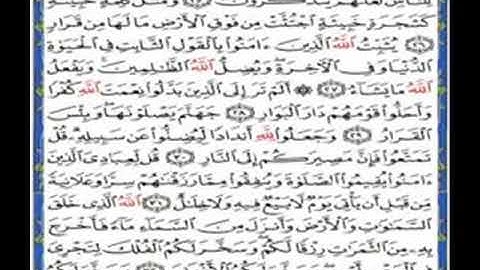 لِلنَّاسِ لَعَلَّهُمْ يَتَذَكَّرُونَ ۝٢٥ وَمَثَلُ كَلِمَةٍ خَبِيثَةٍ
كَشَجَرَةٍ خَبِيثَةٍ ٱجْتُثَّتْ مِن فَوْقِ ٱلْأَرْضِ مَا لَهَا مِن قَرَارٍ
۝٢٦ يُثَبِّتُ ٱللَّهُ ٱلَّذِينَ ءَامَنُوا۟ بِٱلْقَوْلِ ٱلثَّابِتِ فِى ٱلْحَيَوٰةِ
ٱلدُّنْيَا وَفِى ٱلْءَاخِرَةِ ۖ وَيُضِلُّ ٱللَّهُ ٱلظَّٰلِمِينَ ۚ وَيَفْعَلُ
ٱللَّهُ مَا يَشَآءُ ۝٢٧ ۞ أَلَمْ تَرَ إِلَى ٱلَّذِينَ بَدَّلُوا۟ نِعْمَتَ ٱللَّهِ كُفْرًا
وَأَحَلُّوا۟ قَوْمَهُمْ دَارَ ٱلْبَوَارِ ۝٢٨ جَهَنَّمَ يَصْلَوْنَهَا ۖ وَبِئْسَ
ٱلْقَرَارُ ۝٢٩ وَجَعَلُوا۟ لِلَّهِ أَندَادًا لِّيُضِلُّوا۟ عَن سَبِيلِهِۦ ۗ قُلْ
تَمَتَّعُوا۟ فَإِنَّ مَصِيرَكُمْ إِلَى ٱلنَّارِ ۝٣٠ قُل لِّعِبَادِىَ ٱلَّذِينَ
ءَامَنُوا۟ يُقِيمُوا۟ ٱلصَّلَوٰةَ وَيُنفِقُوا۟ مِمَّا رَزَقْنَٰهُمْ سِرًّا وَعَلَانِيَةً
مِّن قَبْلِ أَن يَأْتِىَ يَوْمٌ لَّا بَيْعٌ فِيهِ وَلَا خِلَٰلٌ ۝٣١ ٱللَّهُ ٱلَّذِى خَلَقَ
ٱلسَّمَٰوَٰتِ وَٱلْأَرْضَ وَأَنزَلَ مِنَ ٱلسَّمَآءِ مَآءً فَأَخْرَجَ
بِهِۦ مِنَ ٱلثَّمَرَٰتِ رِزْقًا لَّكُمْ ۖ وَسَخَّرَ لَكُمُ ٱلْفُلْكَ لِتَجْرِىَ